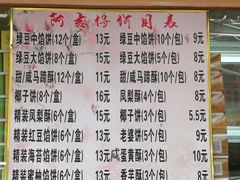 绿豆中馅饼(12个/盒) 13元 绿豆中馅饼(10个/包) 9元
绿豆大馅饼(8个/盒) 15元 绿豆大馅饼(5个/包) 8元
甜/咸马蹄酥(12个/盒) 15元 甜/咸马蹄酥(10个/包) 10元
椰子饼(8个/盒) 16元 凤梨酥(4个/包) 8元
精装凤梨酥(6个/盒) 15元 椰子饼(3个/包) 5.5元
精装红豆馅饼(6个/盒) 13元 老婆饼(5个/包) 9元
精装海苔馅饼(6个/盒) 15元 咸蛋黄酥(3个/包) 10元
精装蜜柚馅饼(6个/盒) 香芋酥(3个/包) 8元